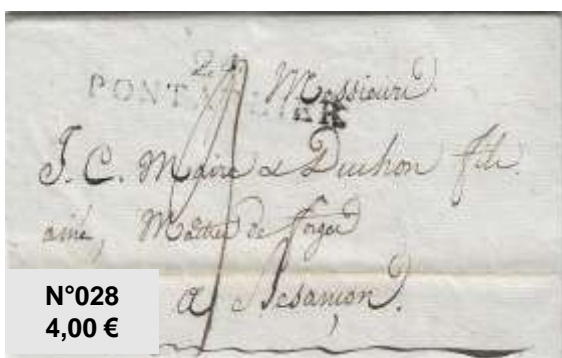 24
PONTARLIER
Messieurs
J. C. Maire & Duchon fils
ainé, Maitre de forges
a Besançon.
N°028
4,00 €